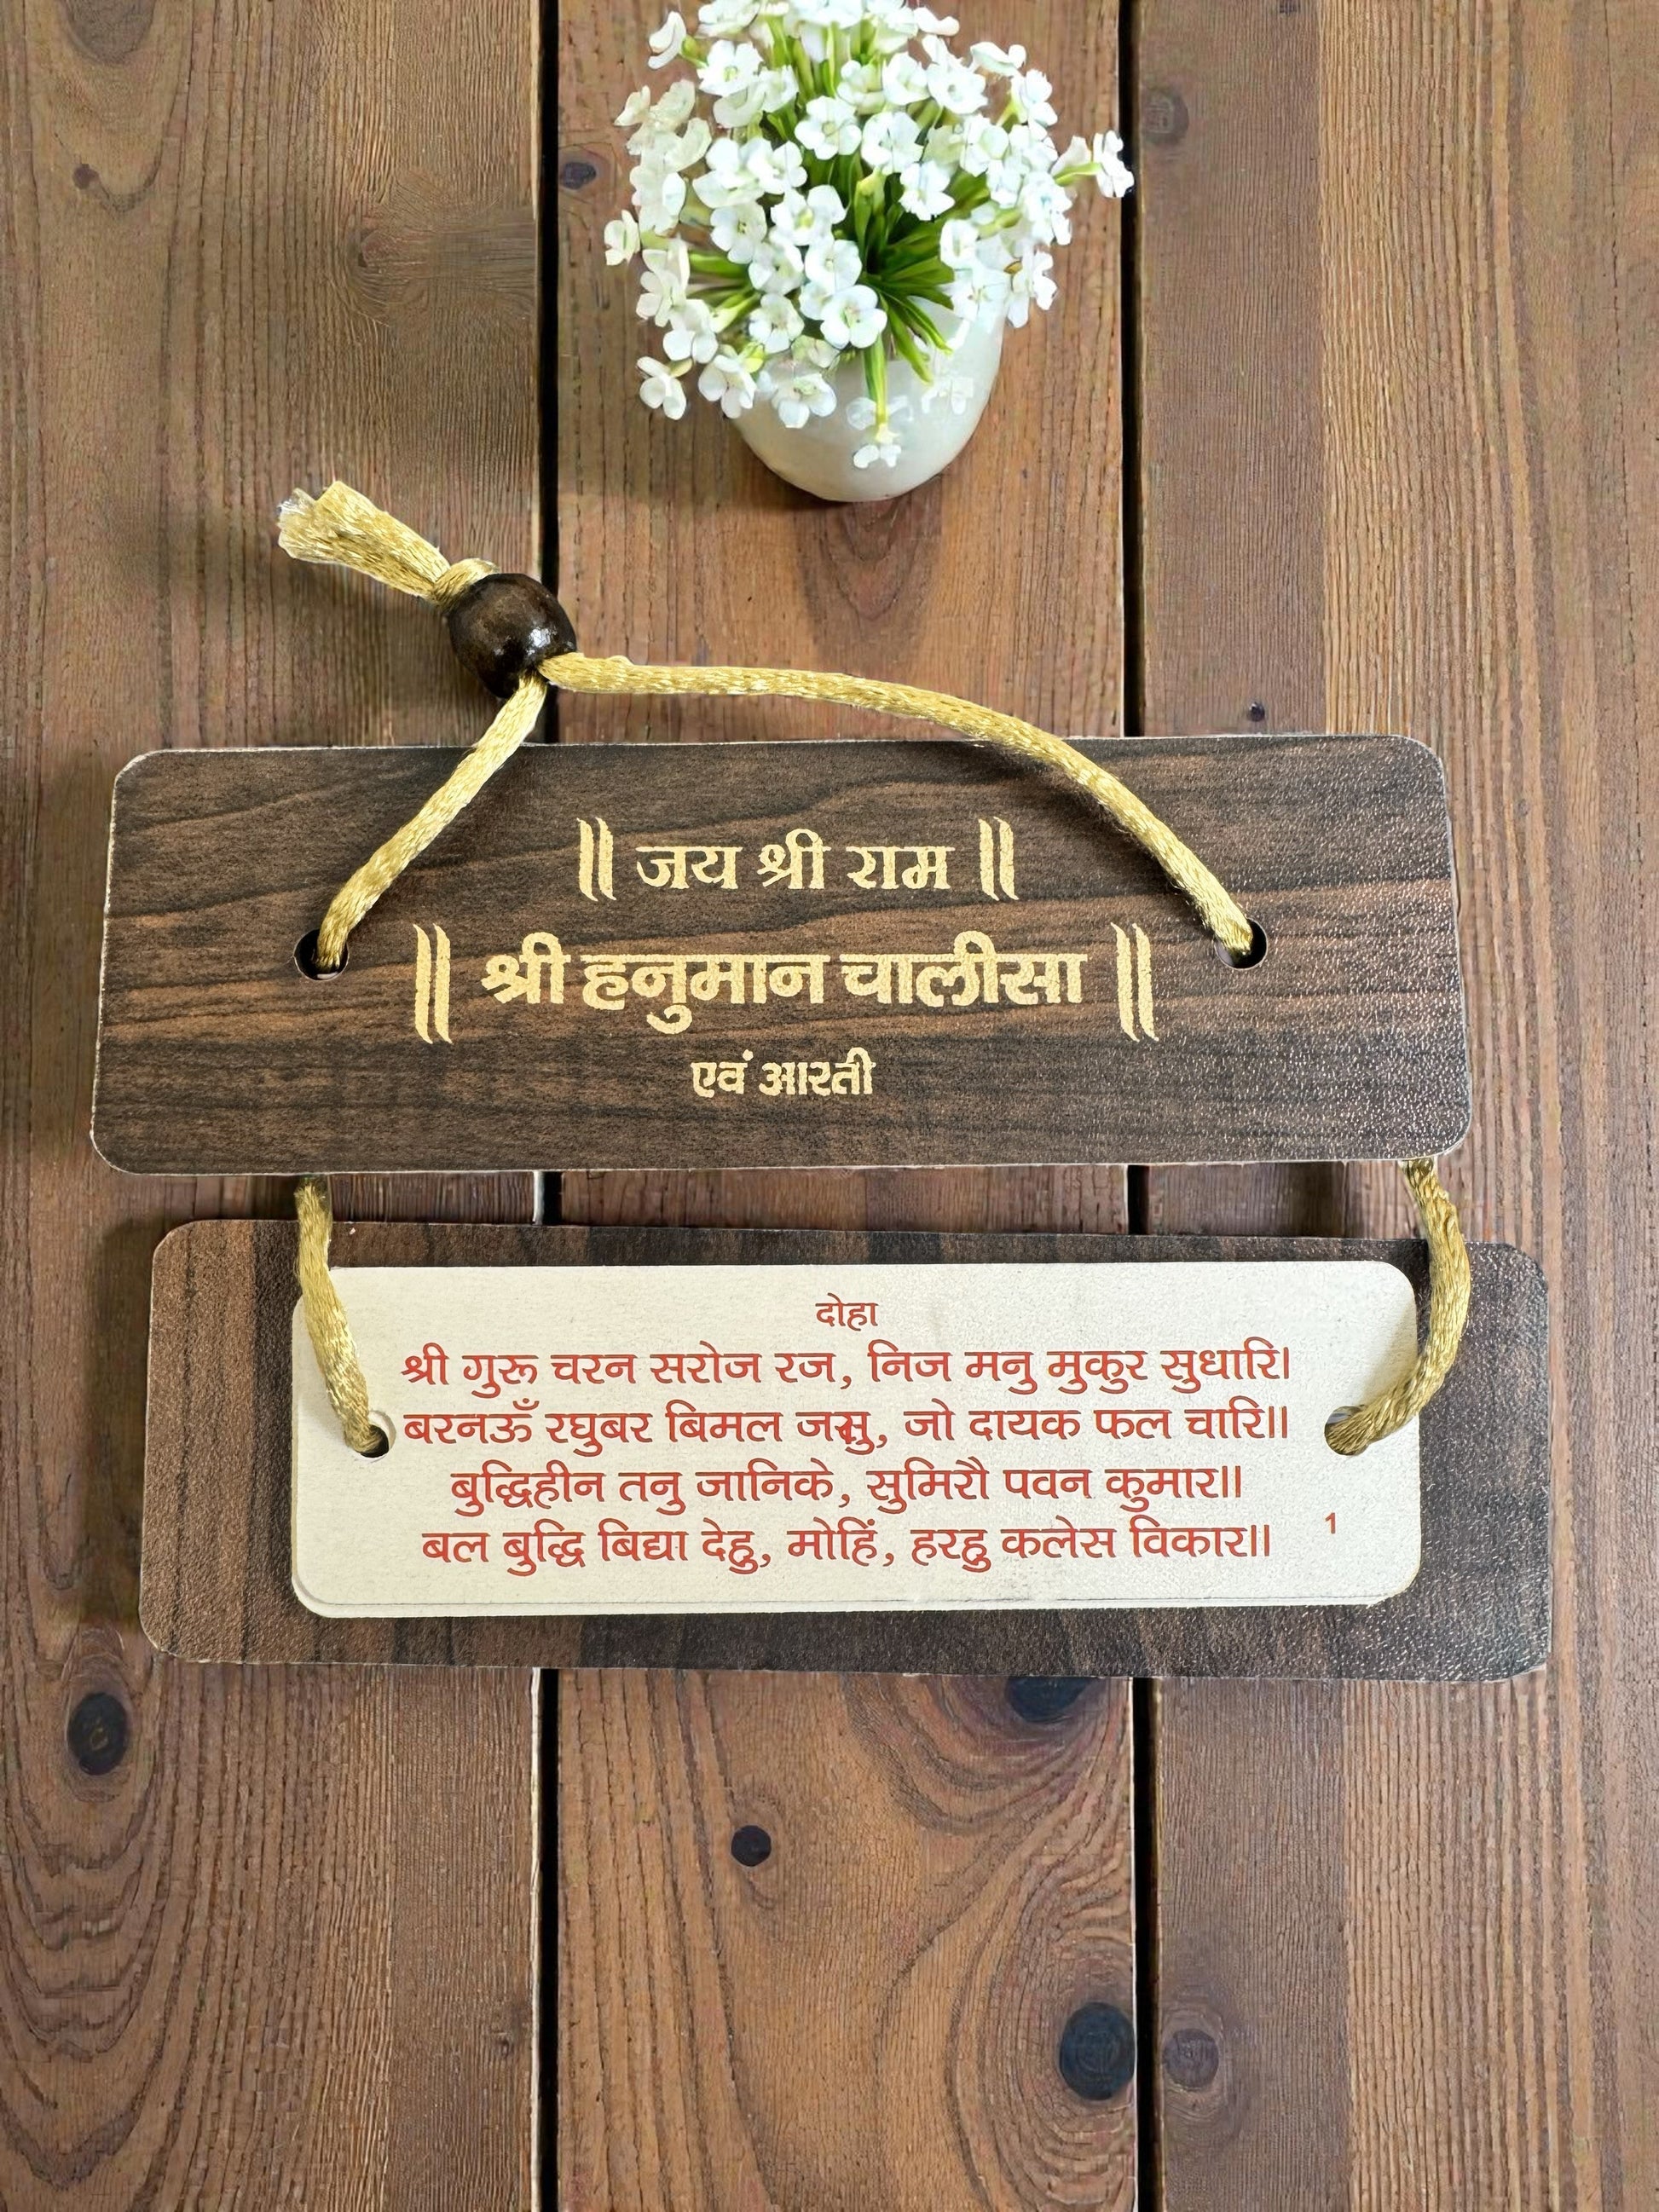 ॥ जय श्री राम ॥
॥ श्री हनुमान चालीसा ॥
एवं आरती
दोहा
श्री गुरू चरन सरोज रज, निज मनु मुकुर सुधारि।
बरनऊँ रघुबर बिमल जसु, जो दायक फल चारि॥
बुद्धिहीन तनु जानिके, सुमिरौ पवन कुमार॥
बल बुद्धि बिद्या देहु, मोहिं, हरहु कलेस विकार॥
1